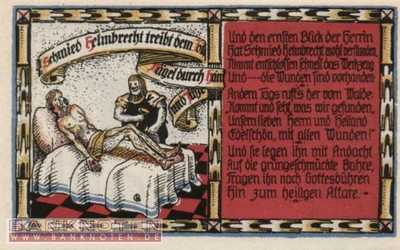 Schmied Helmbrecht treibt dem
Nägel durch Hän
und
Und den ernsten Blick der Herrin
Hat Schmied Helmbrecht wohl verstanden,
Nimmt entschlossen schnell das Werkzeug
Und — die Wunden sind vorhanden.
Andern Tags ruft's her vom Walde:
„Kommt und seht, was wir gefunden,
Unsern lieben Herrn und Heiland
Edelschön, mit allen Wunden!"
Und sie legen ihn mit Andacht
Auf die grüngeschmückte Bahre,
Tragen ihn nach Gottesbühren
Hin zum heiligen Altare.
BANKNOTEN
© WWW.BANKNOTEN.DE